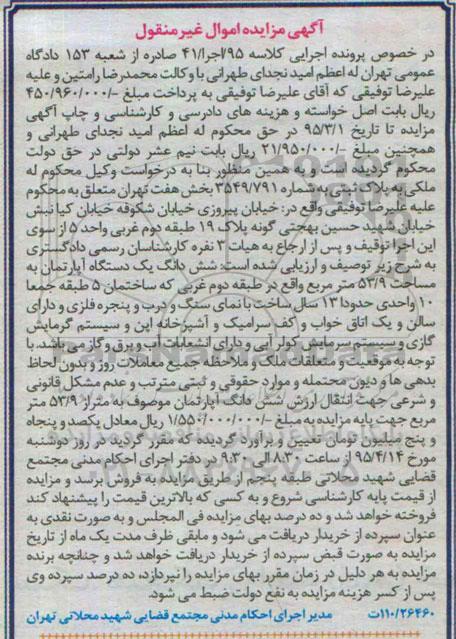 آگهی مزایده اموال غیر منقول
در خصوص پرونده اجرایی کلاسه ۹۵/اجرا/۴۱ صادره از شعبه ۱۵۳ دادگاه
عمومی تهران له اعظم امید نجدای طهرانی با وکالت محمدرضا رامتین و علیه
علیرضا توفیقی که آقای علیرضا توفیقی به پرداخت مبلغ -/۴۵۰/۹۶۰/۰۰۰
ریال بابت اصل خواسته و هزینه های دادرسی و کارشناسی و چاپ آگهی
مزایده تا تاریخ ۹۵/۳/۱ در حق محکوم له اعظم امید نجدای طهرانی و
همچنین مبلغ -/۲۱/۹۵۰/۰۰۰ ریال بابت نیم عشر دولتی در حق دولت
محکوم گردیده است و به همین منظور بنا به درخواست وکیل محکوم له
ملکی به پلاک ثبتی به شماره ۳۵۴۹/۷۹۱ بخش هفت تهران متعلق به محکوم
علیه علیرضا توفیقی واقع در: خیابان پیروزی خیابان شکوفه خیابان کیا نبش
خیابان شهید حسین بهجتی گونه پلاک ۱۹ طبقه دوم غربی واحد ۵ از سوی
این اجرا توقیف و پس از ارجاع به هیات ۳ نفره کارشناسان رسمی دادگستری
به شرح زیر توصیف و ارزیابی شده است: شش دانگ یک دستگاه آپارتمان به
مساحت ۵۳/۹ متر مربع واقع در طبقه دوم غربی که ساختمان ۵ طبقه جمعا
۱۰ واحدی حدودا ۱۳ سال ساخت با نمای سنگ و درب و پنجره فلزی و دارای
سالن و یک اتاق خواب و کف سرامیک و آشپزخانه اپن و سیستم گرمایش
گازی و سیستم سرمایش کولر آبی و دارای انشعابات آب و برق و گاز می باشد. با
توجه به موقعیت و متعلقات ملک و ملاحظه جمیع معاملات روز و بدون لحاظ
بدهی ها و دیون محتمله و موارد حقوقی و ثبتی مترتب و عدم مشکل قانونی
و شرعی جهت انتقال ارزش شش دانگ آپارتمان موصوف به متراژ ۵۳/۹ متر
مربع جهت پایه مزایده به مبلغ -/۱/۵۵۰/۰۰۰/۰۰۰ ریال معادل یکصد و پنجاه
و پنج میلیون تومان تعیین و برآورد گردیده که مقرر گردید در روز دوشنبه
مورخ ۹۵/۴/۱۴ از ساعت ۸:۳۰ الی ۹:۳۰ در دفتر اجرای احکام مدنی مجتمع
قضایی شهید محلاتی طبقه پنجم از طریق مزایده به فروش برسد و مزایده
از قیمت پایه کارشناسی شروع و به کسی که بالاترین قیمت را پیشنهاد کند
فروخته خواهد شد و ده درصد بهای مزایده فی المجلس و به صورت نقدی به
عنوان سپرده از خریدار دریافت می شود و مابقی ظرف مدت یک ماه از تاریخ
مزایده به صورت قبض سپرده از خریدار دریافت خواهد شد و چنانچه برنده
مزایده به هر دلیل در زمان مقرر بهای مزایده را نپردازد، ده درصد سپرده وی
پس از کسر هزینه مزایده به نفع دولت ضبط می شود.
۱۱۰/۲۶۴۶۰ت مدیر اجرای احکام مدنی مجتمع قضایی شهید محلاتی تهران